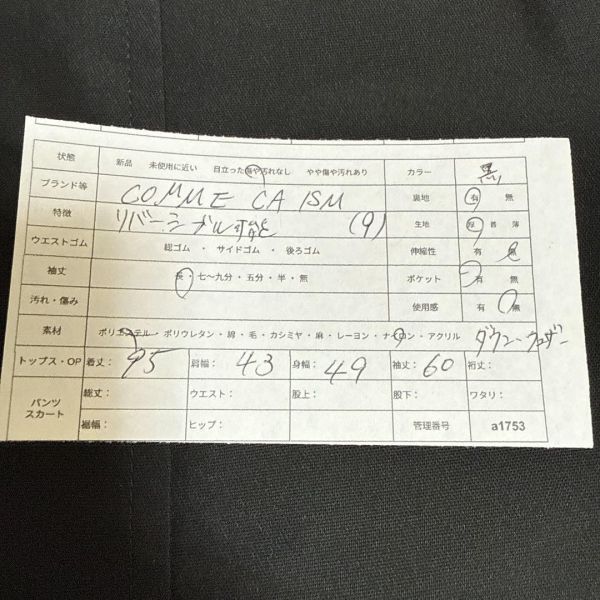 状態 新品 未使用に近い 目立った傷や汚れなし やや傷や汚れあり カラー 黒
ブランド等 COMME CA ISM 裏地 有 無
特徴 リバーシブル可能 (9) 生地 厚 普 薄
ウエストゴム 総ゴム ・ サイドゴム ・ 後ろゴム 伸縮性 有 無
袖丈 長・七～九分・五分・半・無 ポケット 有 無
汚れ・傷み 使用感 有 無
素材 ポリエステル・ポリウレタン・綿・毛・カシミヤ・麻・レーヨン・ナイロン・アクリル ダウン・フェザー
トップス・OP 着丈: 95 肩幅: 43 身幅: 49 袖丈: 60 裄丈:
パンツ スカート 総丈: ウエスト: 股上: 股下: ワタリ:
裾幅: ヒップ: 管理番号 a1753